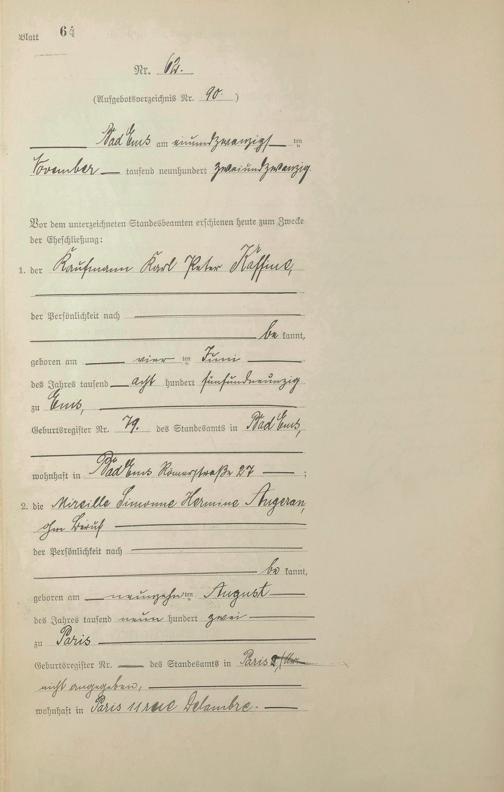 Blatt 64
Nr. 62.
(Aufgebotsverzeichnis Nr. 90)
Bad Ems am neunundzwanzigsten
November tausend neunhundert zweiundzwanzig.
Vor dem unterzeichneten Standesbeamten erschienen heute zum Zwecke
der Eheschließung:
1. der Kaufmann Karl Peter
der Persönlichkeit nach
be kannt,
geboren am vier ten Juni
des Jahres tausend acht hundert fünfundneunzig
zu Ems,
Geburtsregister Nr. 79. des Standesamts in Bad Ems,
wohnhaft in Bad Ems Römerstraße 27 ;
2. die Mireille Simonne Hermine Angeran,
ohne Beruf
der Persönlichkeit nach
be kannt,
geboren am neunzehn ten August
des Jahres tausend neun hundert zwei
zu Paris
Geburtsregister Nr. des Standesamts in Paris
nicht angegeben,
wohnhaft in Paris 11 rue Delambre.